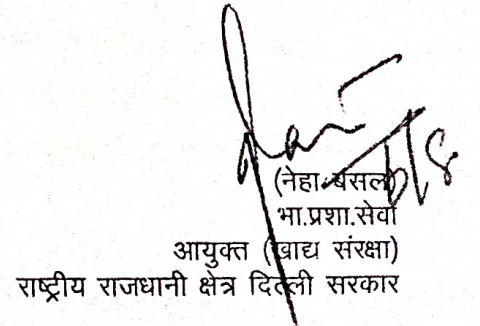 (नेहा बंसल)
भा.प्रशा.सेवा
आयुक्त (खाद्य संरक्षा)
राष्ट्रीय राजधानी क्षेत्र दिल्ली सरकार